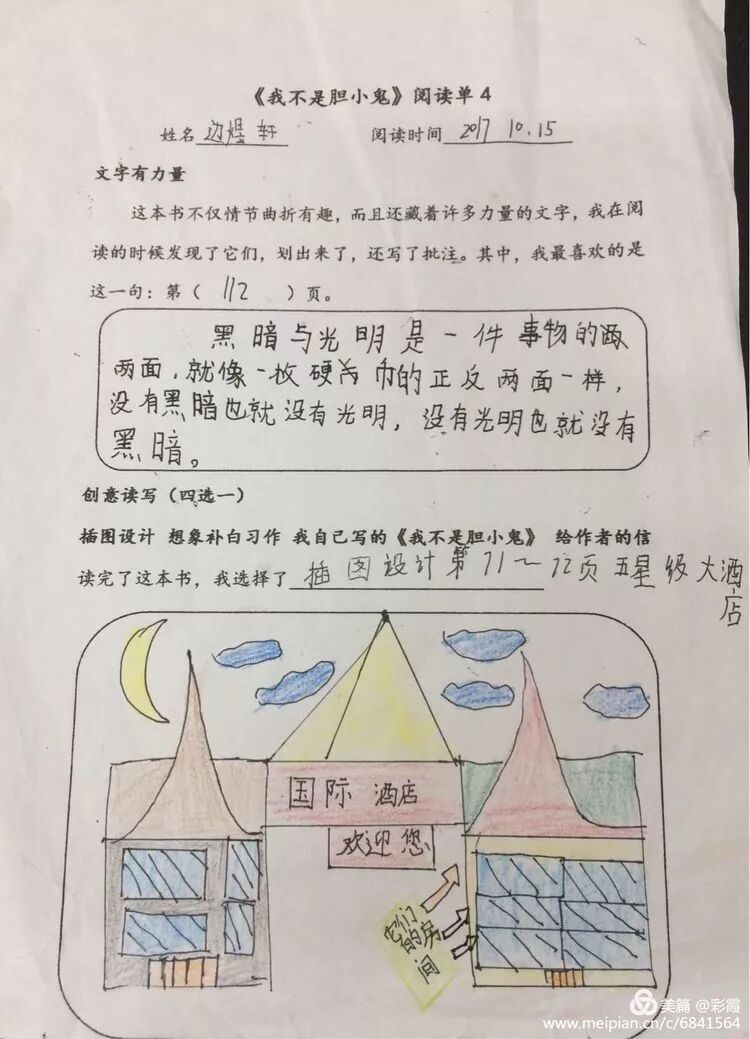 《我不是胆小鬼》阅读单4
姓名 边煜轩 阅读时间 2017 10.15
文字有力量
这本书不仅情节曲折有趣，而且还藏着许多力量的文字，我在阅
读的时候发现了它们，划出来了，还写了批注。其中，我最喜欢的是
这一句：第（ 112 ）页。
黑暗与光明是一件事物的
两面，就像一枚硬币的正反两面一样，
没有黑暗也就没有光明，没有光明也就没有
黑暗。
创意读写（四选一）
插图设计 想象补白习作 我自己写的《我不是胆小鬼》 给作者的信
读完了这本书，我选择了 插图设计第71～72页五星级大酒店
国际 酒店
欢迎您
它们
的房
间
美篇 @彩霞
www.meipian.cn/c/6841564